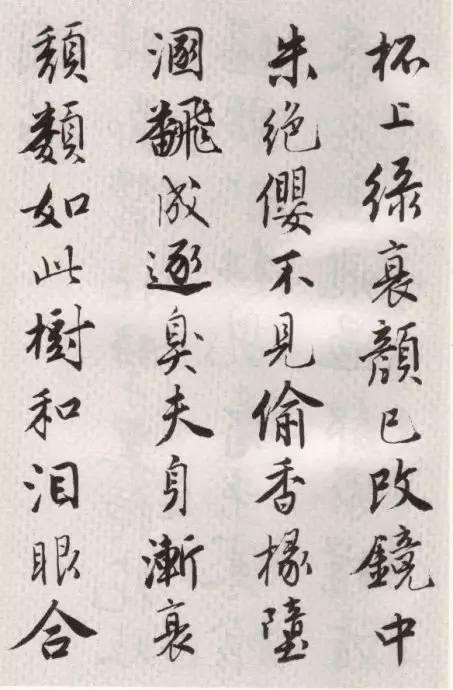 杯上緑衰顔已改鏡中
朱絶纓不見偷香椽墮
溷飜成逐臭夫身漸衰
頹類如此樹和泪眼合